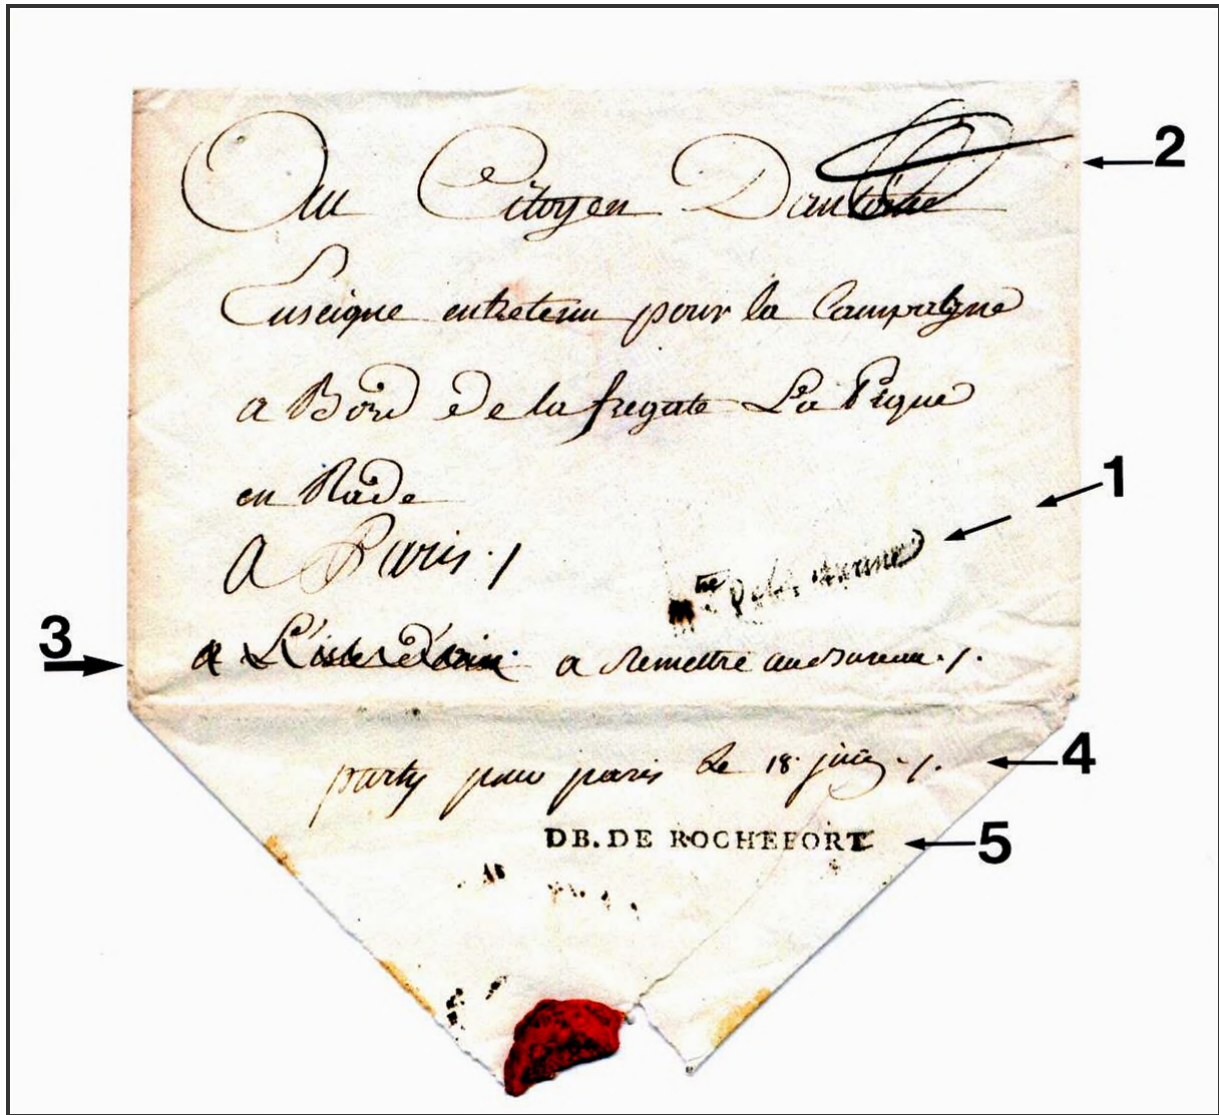 2
Au Citoyen Dantoine
Enseigne entretenu pour la Campaigne
a Bord de la fregate La Pique
en Rade
1
A Paris ./
Mtre De la marine
3
a L'isle d'aix a Remettre au Bureau ./.
party pour paris le 18 juin ./.
4
DB. DE ROCHEFORT
5